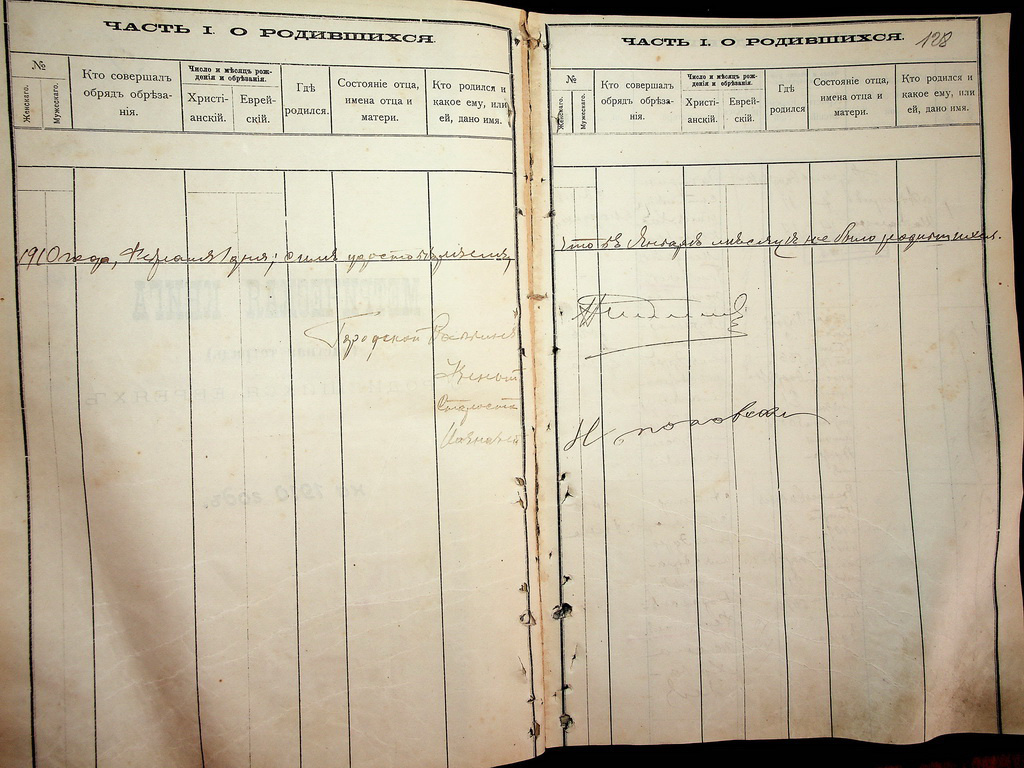 ЧАСТЬ I. О РОДИВШИХСЯ.
№
Женскаго.
Мужескаго.
Кто совершалъ
обрядъ обрѣза-
нія.
Число и мѣсяцъ рож-
денія и обрѣзанія.
Христі-
анскій.
Еврей-
скій.
Гдѣ
родился.
Состояніе отца,
имена отца и
матери.
Кто родился и
какое ему, или
ей, дано имя.
1910 года, Февраля 1 дня; симъ удостовѣряемъ,
Городской Раввинъ
Староста
Казначей
ЧАСТЬ I. О РОДИВШИХСЯ.
128
№
Женскаго.
Мужескаго.
Кто совершалъ
обрядъ обрѣза-
нія.
Число и мѣсяцъ рож-
денія и обрѣзанія.
Христі-
анскій.
Еврей-
скій.
Гдѣ
родился
Состояніе отца,
имена отца и
матери.
Кто родился и
какое ему, или
ей, дано имя.
что въ Январѣ мѣсяцѣ не было родившихся.